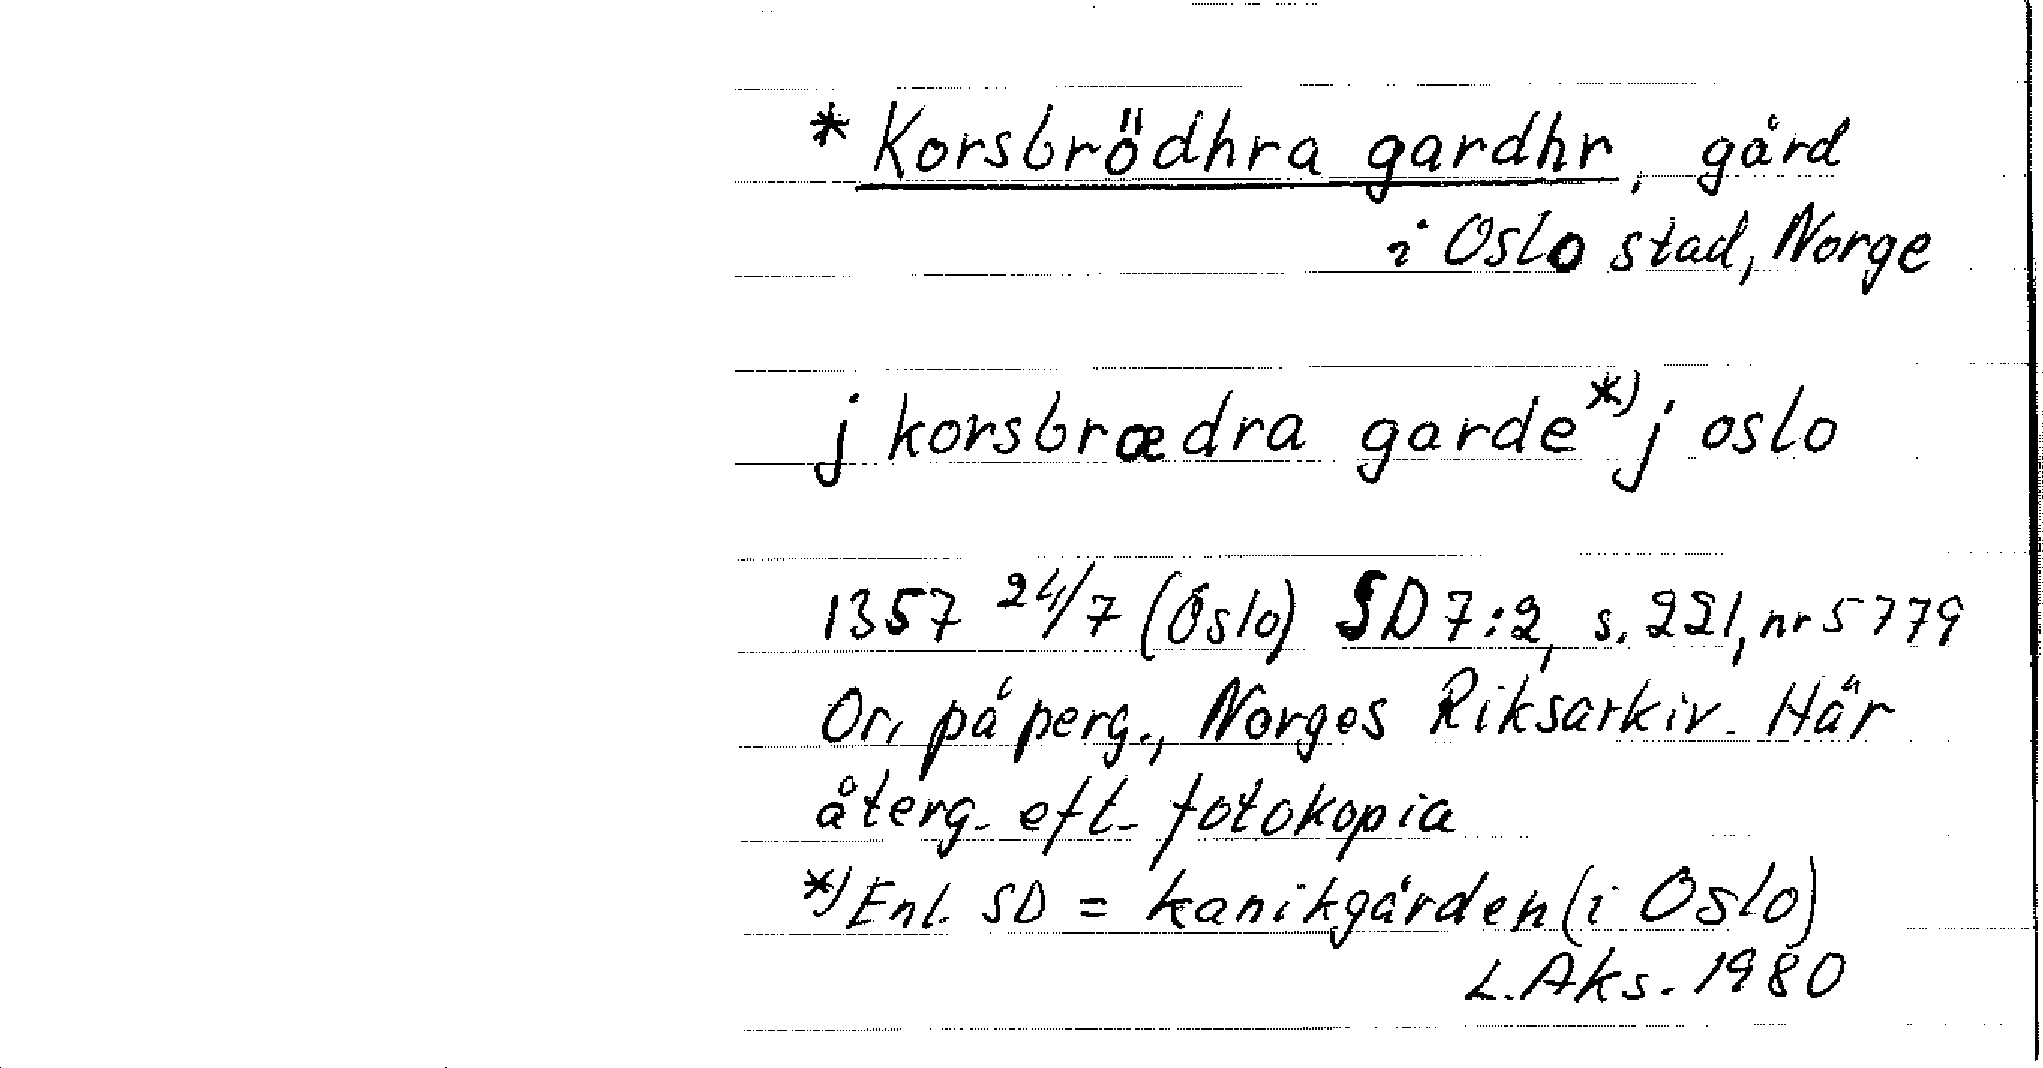 * Korsbrödhra gardhr, gård
i Oslo stad, Norge
j korsbrædra garde*) j oslo
1357 24/7 (Oslo) SD 7:2, s. 221, nr 5779
Or. på perg., Norges Riksarkiv. Här
återg. eft. fotokopia
*) Enl. SD = kanikgården (i Oslo)
L. Aks. 1980